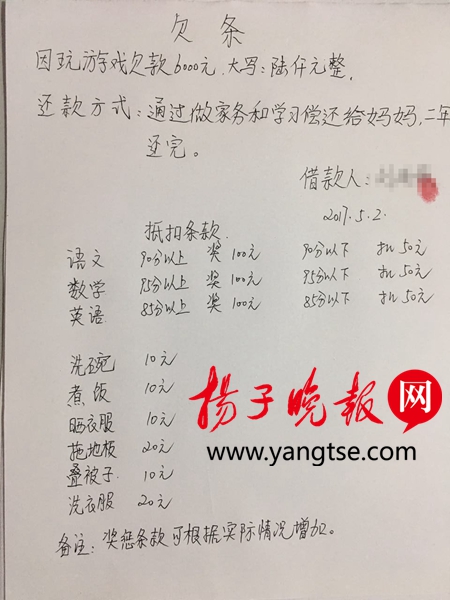 欠条
因玩游戏欠款6000元.大写:陆仟元整,
还款方式:通过做家务和学习偿还给妈妈,二年
还完。
借款人:
2017.5.2.
抵扣条款
语文 90分以上 奖100元 90分以下 扣50元
数学 95分以上 奖100元 95分以下 扣50元
英语 85分以上 奖100元 85分以下 扣50元
洗碗 10元
煮饭 10元
晒衣服 10元
拖地板 20元
叠被子 10元
洗衣服 20元
扬子晚报网
www.yangtse.com
备注:奖惩条款可根据实际情况增加。